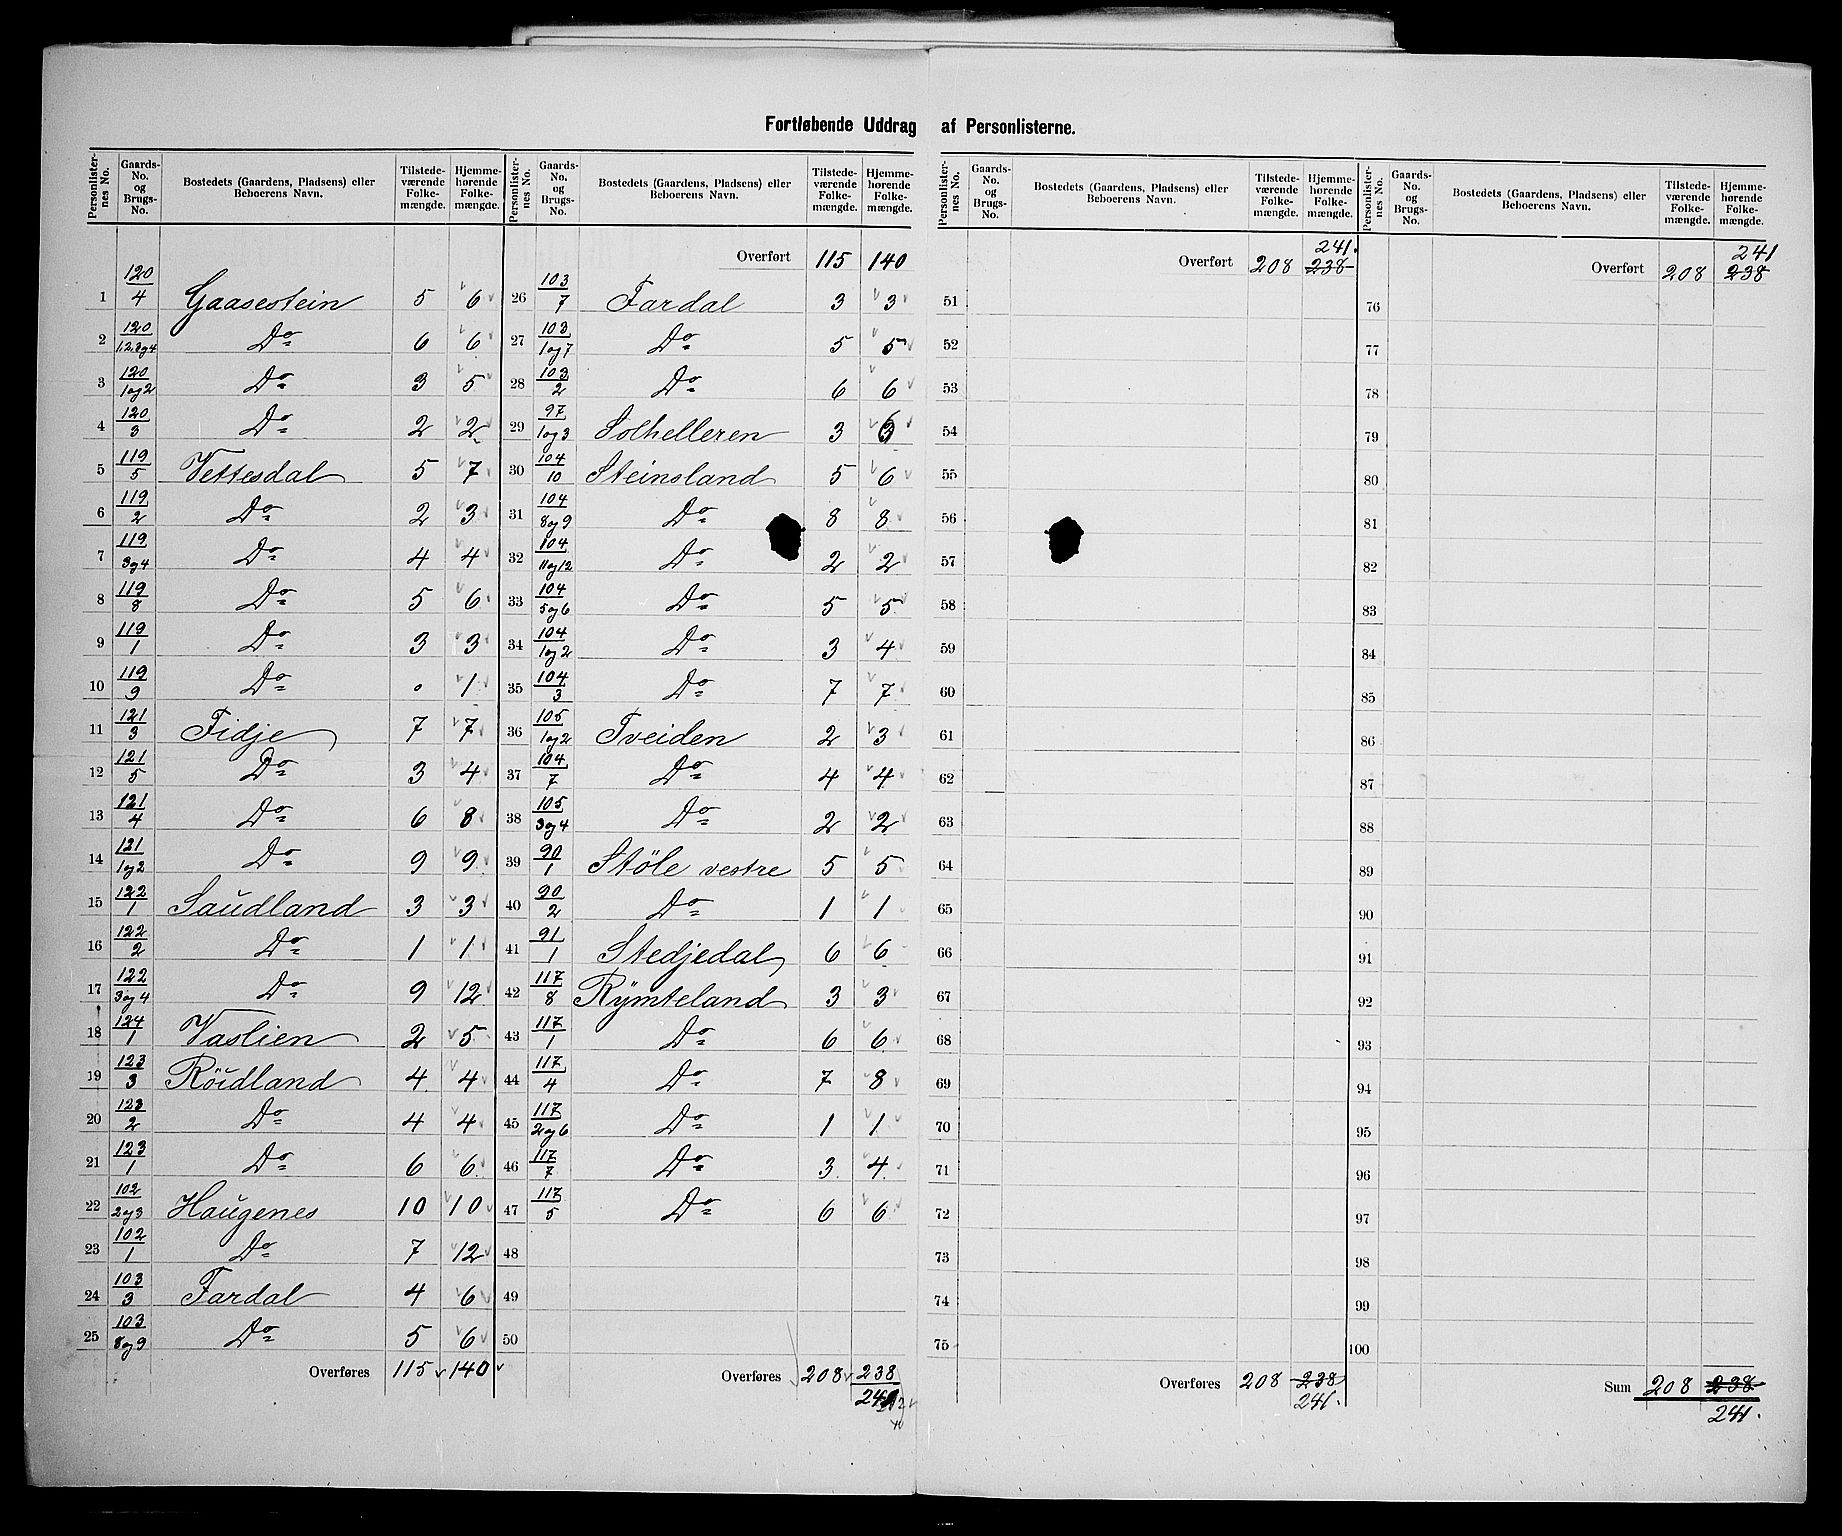 Fortløbende Uddrag af Personlisterne.
Personlister-nes No. | Gaards-No. og Brugs-No. | Bostedets (Gaardens, Pladsens) eller Beboerens Navn. | Tilstede-værende Folke-mængde. | Hjemme-hørende Folke-mængde.
1 120/4 Gaasestein 5 6
2 120/1,2,3og4 Do 6 6
3 120/1og2 Do 3 5
4 120/3 Do 2 2
5 119/5 Vettesdal 5 7
6 119/2 Do 2 3
7 119/3og4 Do 4 4
8 119/8 Do 5 6
9 119/1 Do 3 3
10 119/9 Do 0 1
11 121/3 Fidje 7 7
12 121/5 Do 3 4
13 121/4 Do 6 8
14 121/1og2 Do 9 9
15 122/1 Saudland 3 3
16 122/2 Do 1 1
17 122/3og4 Do 9 12
18 124/1 Vaslien 2 5
19 123/3 Röidland 4 4
20 123/2 Do 4 4
21 123/1 Do 6 6
22 102/2og3 Haugenes 10 10
23 102/1 Do 7 12
24 103/3 Fardal 4 6
25 103/8og9 Do 5 6
Overføres 115 140
Personlister-nes No. | Gaards-No. og Brugs-No. | Bostedets (Gaardens, Pladsens) eller Beboerens Navn. | Tilstede-værende Folke-mængde. | Hjemme-hørende Folke-mængde.
Overført 115 140
26 103/7 Fardal 3 3
27 103/1og7 Do 5 5
28 103/2 Do 6 6
29 97/1og3 Solhelleren 3 6
30 104/10 Steinsland 5 6
31 104/8og9 Do 8 8
32 104/11og12 Do 2 2
33 104/5og6 Do 5 5
34 104/1og2 Do 3 4
35 104/3 Do 7 7
36 105/1og2 Tveiden 2 3
37 104/7 Do 4 4
38 105/3og4 Do 2 2
39 90/1 Støle vestre 5 5
40 90/2 Do 1 1
41 91/1 Stedjedal 6 6
42 117/8 Rymteland 3 3
43 117/1 Do 6 6
44 117/4 Do 7 8
45 117/2og6 Do 1 1
46 117/7 Do 3 4
47 117/5 Do 6 6
48
49
50
Overføres 208 238
241
Personlister-nes No. | Gaards-No. og Brugs-No. | Bostedets (Gaardens, Pladsens) eller Beboerens Navn. | Tilstede-værende Folke-mængde. | Hjemme-hørende Folke-mængde.
241.
Overført 208 238
51
52
53
54
55
56
57
58
59
60
61
62
63
64
65
66
67
68
69
70
71
72
73
74
75
Overføres 208 238
241.
Personlister-nes No. | Gaards-No. og Brugs-No. | Bostedets (Gaardens, Pladsens) eller Beboerens Navn. | Tilstede-værende Folke-mængde. | Hjemme-hørende Folke-mængde.
241
Overført 208 238
76
77
78
79
80
81
82
83
84
85
86
87
88
89
90
91
92
93
94
95
96
97
98
99
100
Sum 208 238
241.